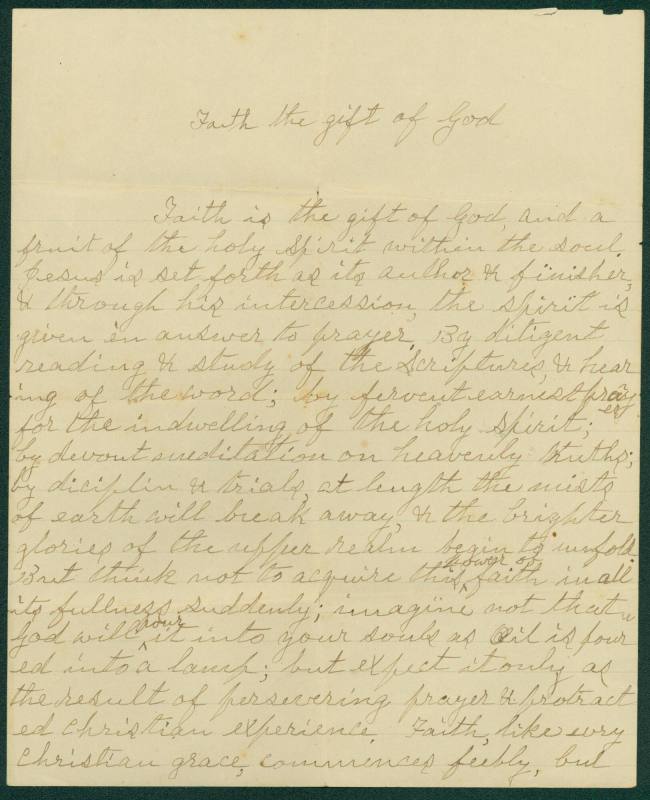 Faith the gift of God
Faith is the gift of God, and a
fruit of the holy spirit within the soul.
Jesus is set forth as its author & finisher,
& through his intercession, the spirit is
given in answer to prayer. By diligent
reading & study of the Scriptures, & hear
ing of the word; by fervent earnest pray
er
for the indwelling of the holy spirit;
by devout meditation on heavenly truths;
by diciplin & trials, at length the mists
of earth will break away, & the brighter
glories of the upper realm begin to unfold.
But think not to acquire this power of faith in all
its fullness suddenly; imagine not that
God will pour it into your souls as oil is pour
ed into a lamp; but expect it only as
the result of persevering prayer & protract
ed Christian experience. Faith, like evry
Christian grace, commences feebly, but